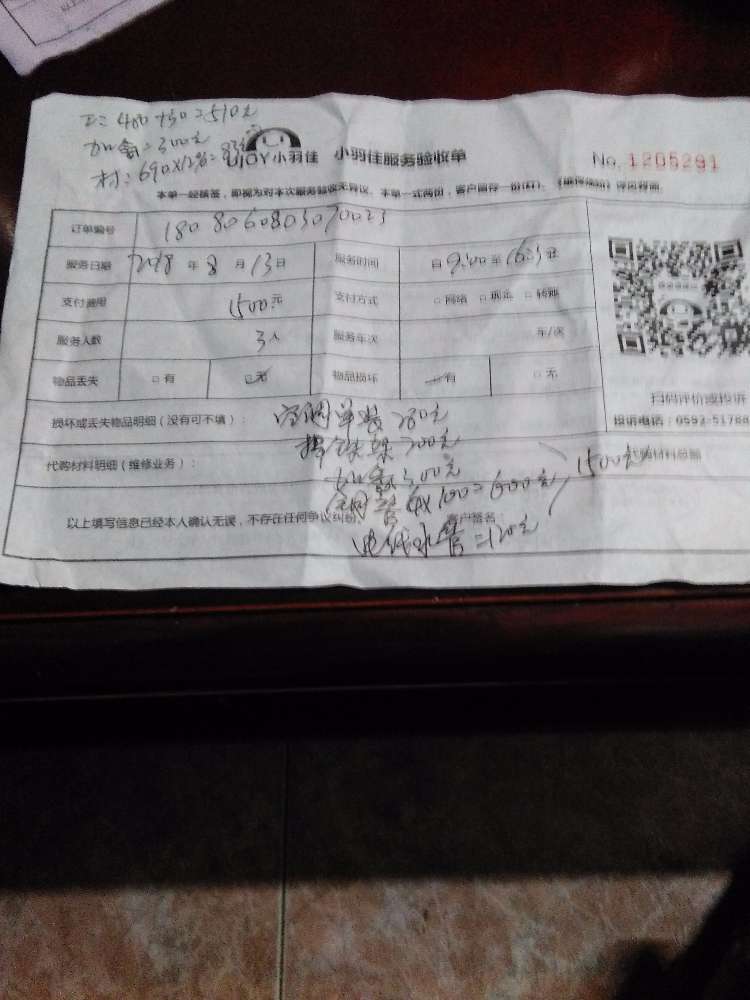 工：480+30=510元
加氟=300元
材：690×12%=83元
UJOY小羽佳 小羽佳服务验收单
No. 1205291
本单一经填签，即视为对本次服务验收无异议，本单一式两份，客户留存一份
订单编号 1808060803070023
服务日期 2018年8月13日 服务时间 自9:00至
支付费用 1500元 支付方式 □网络 □现金 □转账
服务人数 3人 服务车次 车/次
物品丢失 □有 □无 物品损坏 □有 □无
扫码评价或投诉
投诉电话：0592-51768
损坏或丢失物品明细（没有可不填）： 空调单装280元
铁架200元
代购材料明细（维修业务）： 代购材料总额
加氟300元
管 6×100=600元 1500元
以上填写信息已经本人确认无误，不存在任何争议纠纷。 客户签名：
水管=120元